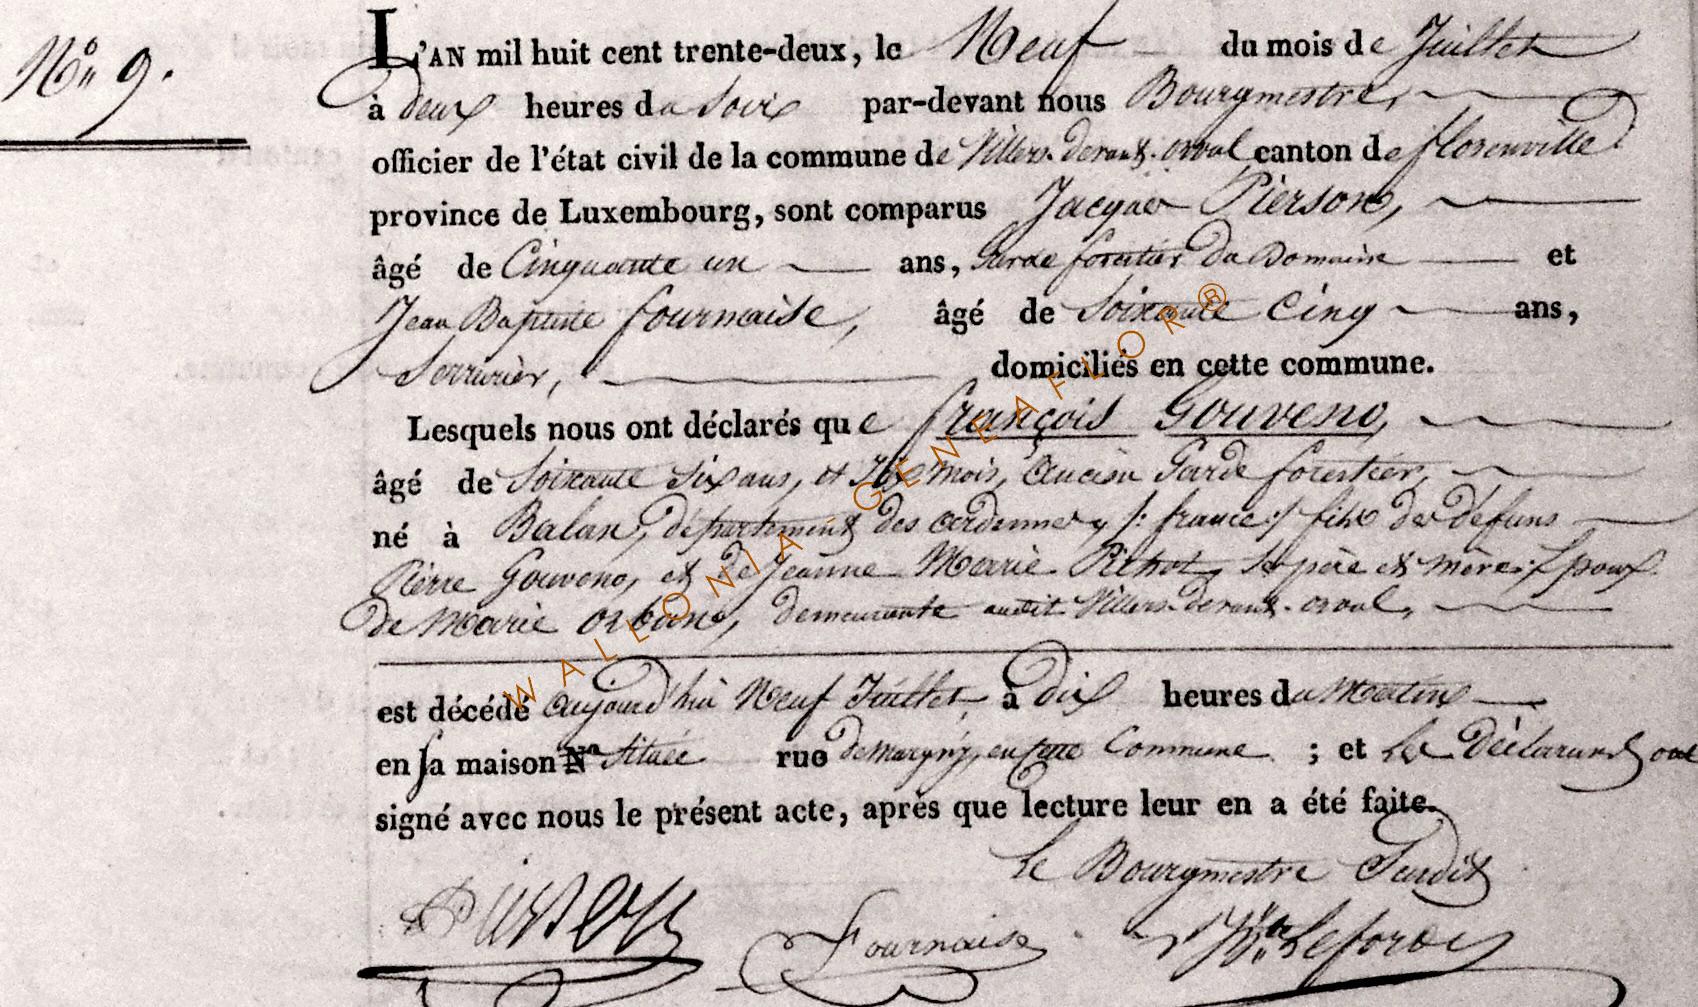 N.º 9.
L'AN mil huit cent trente-deux, le Neuf du mois de Juillet
à deux heures du Soir par-devant nous Bourgmestre,
officier de l'état civil de la commune de Villers-devant-orval canton de florenville
province de Luxembourg, sont comparus Jacques Pierson,
âgé de Cinquante un ans, Garde forestier du Domaine et
Jean Baptiste fournaise, âgé de Soixante Cinq ans,
Serrurier, domiciliés en cette commune.
Lesquels nous ont déclarés que françois Gouveno,
âgé de Soixante Six ans, et mois, Ancien Garde forestier,
né à Balan, département des ardennes /: france :/ fils des défuns
Pierre Gouveno, et de Jeanne Marie Pichot, Ses père et mère; Epoux
de Marie orban, demeurante audit Villers-devant-orval,
est décédé aujourd'hui Neuf Juillet, à dix heures du Matin
en sa maison Nº Située rue de Margny, en cette Commune ; et les Déclarans ont
signé avec nous le présent acte, après que lecture leur en a été faite.
Le Bourgmestre Susdit
Pierson Fournaise
WALLONIA GENEAFLOR®